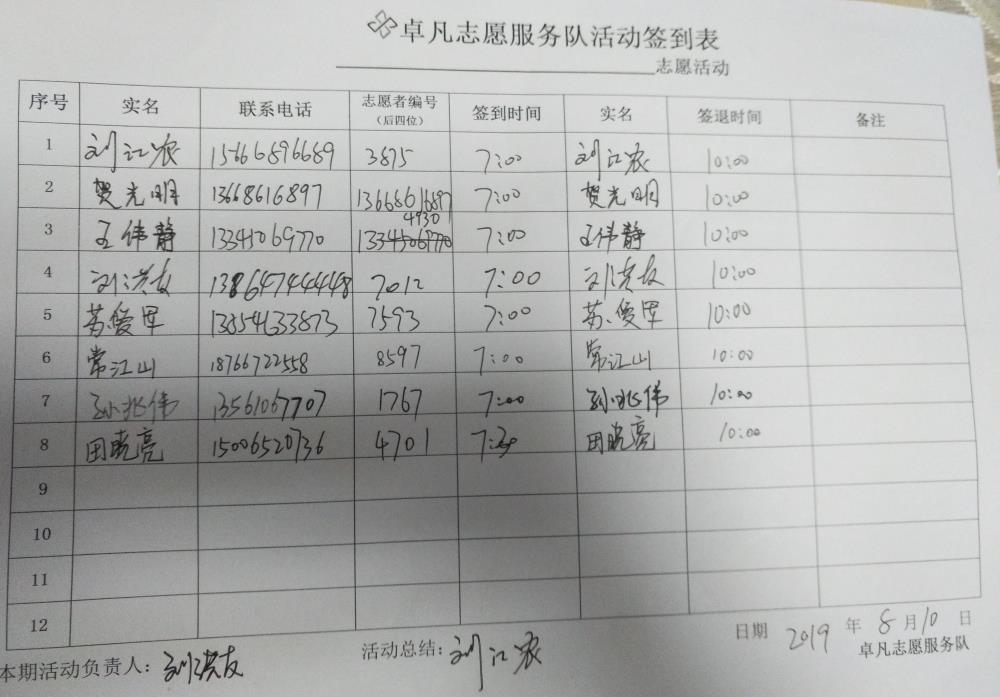 卓凡志愿服务队活动签到表
志愿活动
序号 实名 联系电话 志愿者编号（后四位） 签到时间 实名 签退时间 备注
1 刘江农 15666896689 3875 7:00 刘江农 10:00
2 贺光明 13668616897 13668616897 7:00 贺光明 10:00
3 王伟静 13345069770 4930 7:00 王伟静 10:00
4 刘洪友 7012 7:00 刘洪友 10:00
5 苏爱军 13854133873 7593 7:00 苏爱军 10:00
6 常江山 18766722558 8597 7:00 常江山 10:00
7 孙兆伟 13561067707 1767 7:00 孙兆伟 10:00
8 田晓亮 15006520736 4701 田晓亮 10:00
9
10
11
12
日期 2019 年 8 月 10 日
本期活动负责人：刘洪友 活动总结：刘江农 卓凡志愿服务队